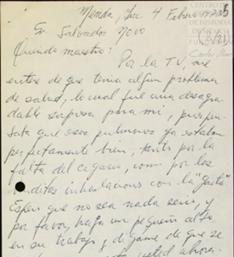 Merida, Yuc 4 Febrero
Sr. Salvador Novo
Querido maestro:
Por la TV, me
entero de que tenia algún problema
de salud, lo cual fué una desagra
dable sorpresa para mi, pues pen
saba que sus pulmones ya estaban
perfectamente bien, tanto por la
falta del cigarro, como por las
inhalaciones con la
Espero que no sea nada serio, y
por favor, haga un pequeño alto
en su trabajo y digame de que se
usted ahora.